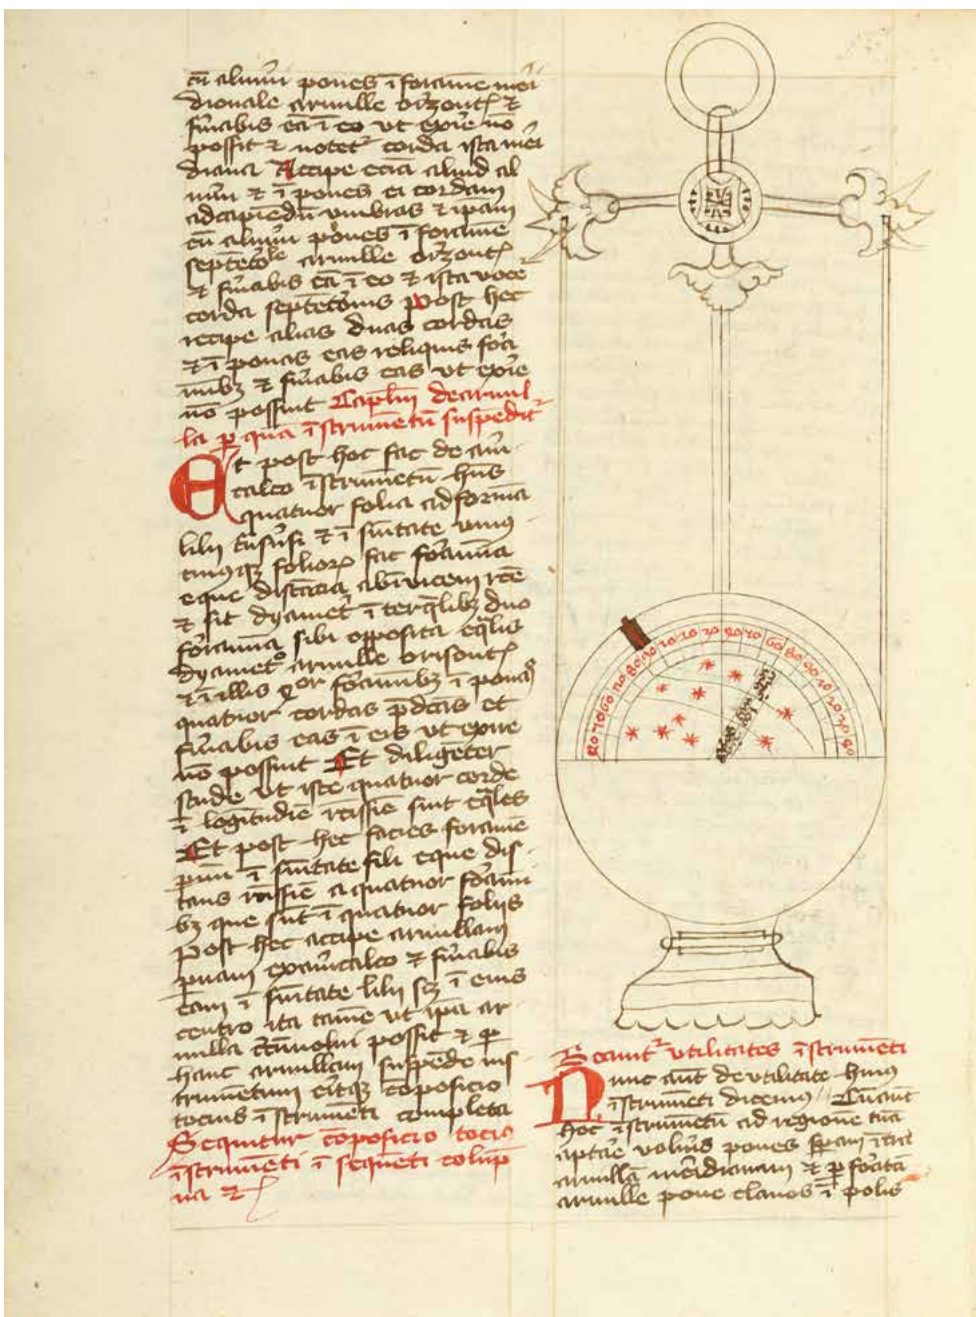 cū almuri pones ī foramē meri
dionale armille orizont͛ ⁊
firmabis eā ī eo ut exire nō
possit ⁊ notet͛ corda ista meri
diana Accipe eciā aliud al
muri ⁊ ī pones ei cordam
ad capiēdū umbras ⁊ ipam
cū almuri pones ī foramē
septētōle armille orizont͛
⁊ firmabis eā ī eo ⁊ ista voce͛
corda septētōnis Post hec
recipe alias duas cordas
⁊ ī ponas eas reliquis forā
inibꝫ ⁊ firmabis eas ut exire
nō possint Caplm de armil
la ꝑ quā īstrumētū suspēdit͛
Et post hoc fac de auri
calco īstrumētū hn̄s
quatuor folia ad formā
lilij ⁊ ī sūitate unius
cuiusqꝫ folioꝝ fac forāina
eque distācia abinvicem rcē
⁊ sit dyamet͛ īter qlibꝫ duo
forāina sibi opposita eqlis
dyametro armille orisont͛
⁊ ī illis q̊or forāinibꝫ ī ponas
quatuor cordas p̄dcās et
firmabis eas ī eis ut exire
nō possint Et diligēter
stude ut iste quatuor corde
ī lōgitudīe rcīssīe sint eqles
Et post hec facies foramē
ī sūitate lili eque dis
tans rcīssīe a quatuor forāini
bꝫ que sūt ī quatuor foliis
Post hec accipe armillam
puam ex auricalco ⁊ firmabis
eam ī sūitate lilij sꝫ ī eius
centro ita tamē ut ipa ar
milla cīcūvolui possit ⁊ ꝑ
hanc armillam suspēde ins
trumentum eritqꝫ cōposicio
tocius īstrumēti completa
Sequitur cōposicio tociꝰ
īstrumēti ī sequēti colūp
na ⁊͛
80 70 60 50 80 90 10 20 30 40 50 60 80 90 10 20 30 40
Secunt͛ utilitates īstrumēti
Nunc aūt de utilitate huius
īstrumēti dicemus Cū aūt
hoc īstrumētū ad regionē tuā
aptare volūis pones speram īt͛
armillā meridianam ⁊ ꝑ forātā
armille pone clavos ī polis